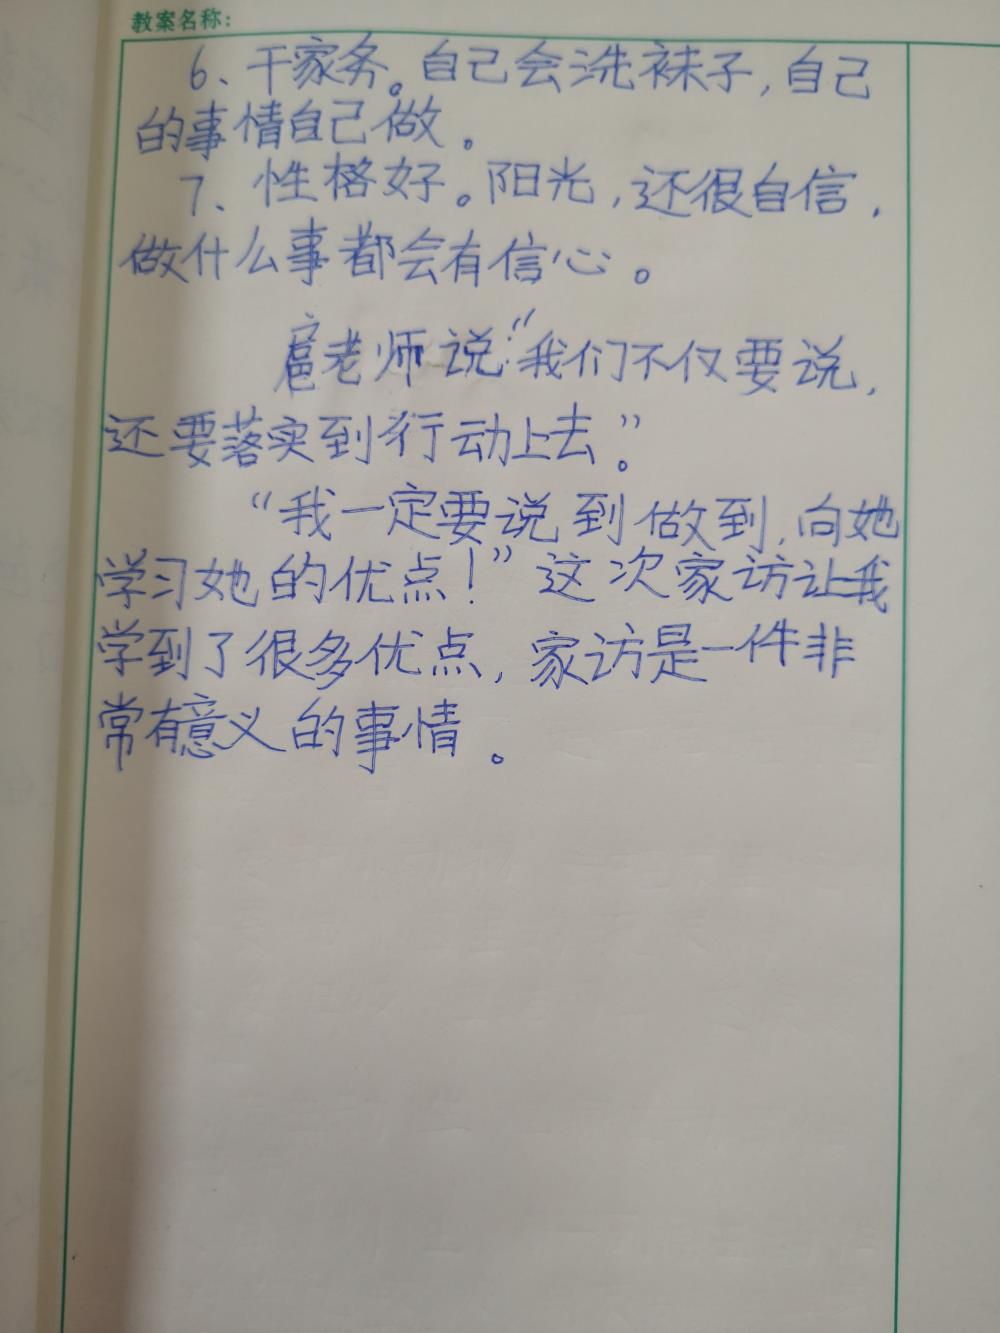 教案名称：
6、干家务。自己会洗袜子，自己
的事情自己做。
7、性格好。阳光，还很自信，
做什么事都会有信心。
扈老师说：“我们不仅要说，
还要落实到行动上去。”
“我一定要说到做到，向她
学习她的优点！”这次家访让我
学到了很多优点，家访是一件非
常有意义的事情。